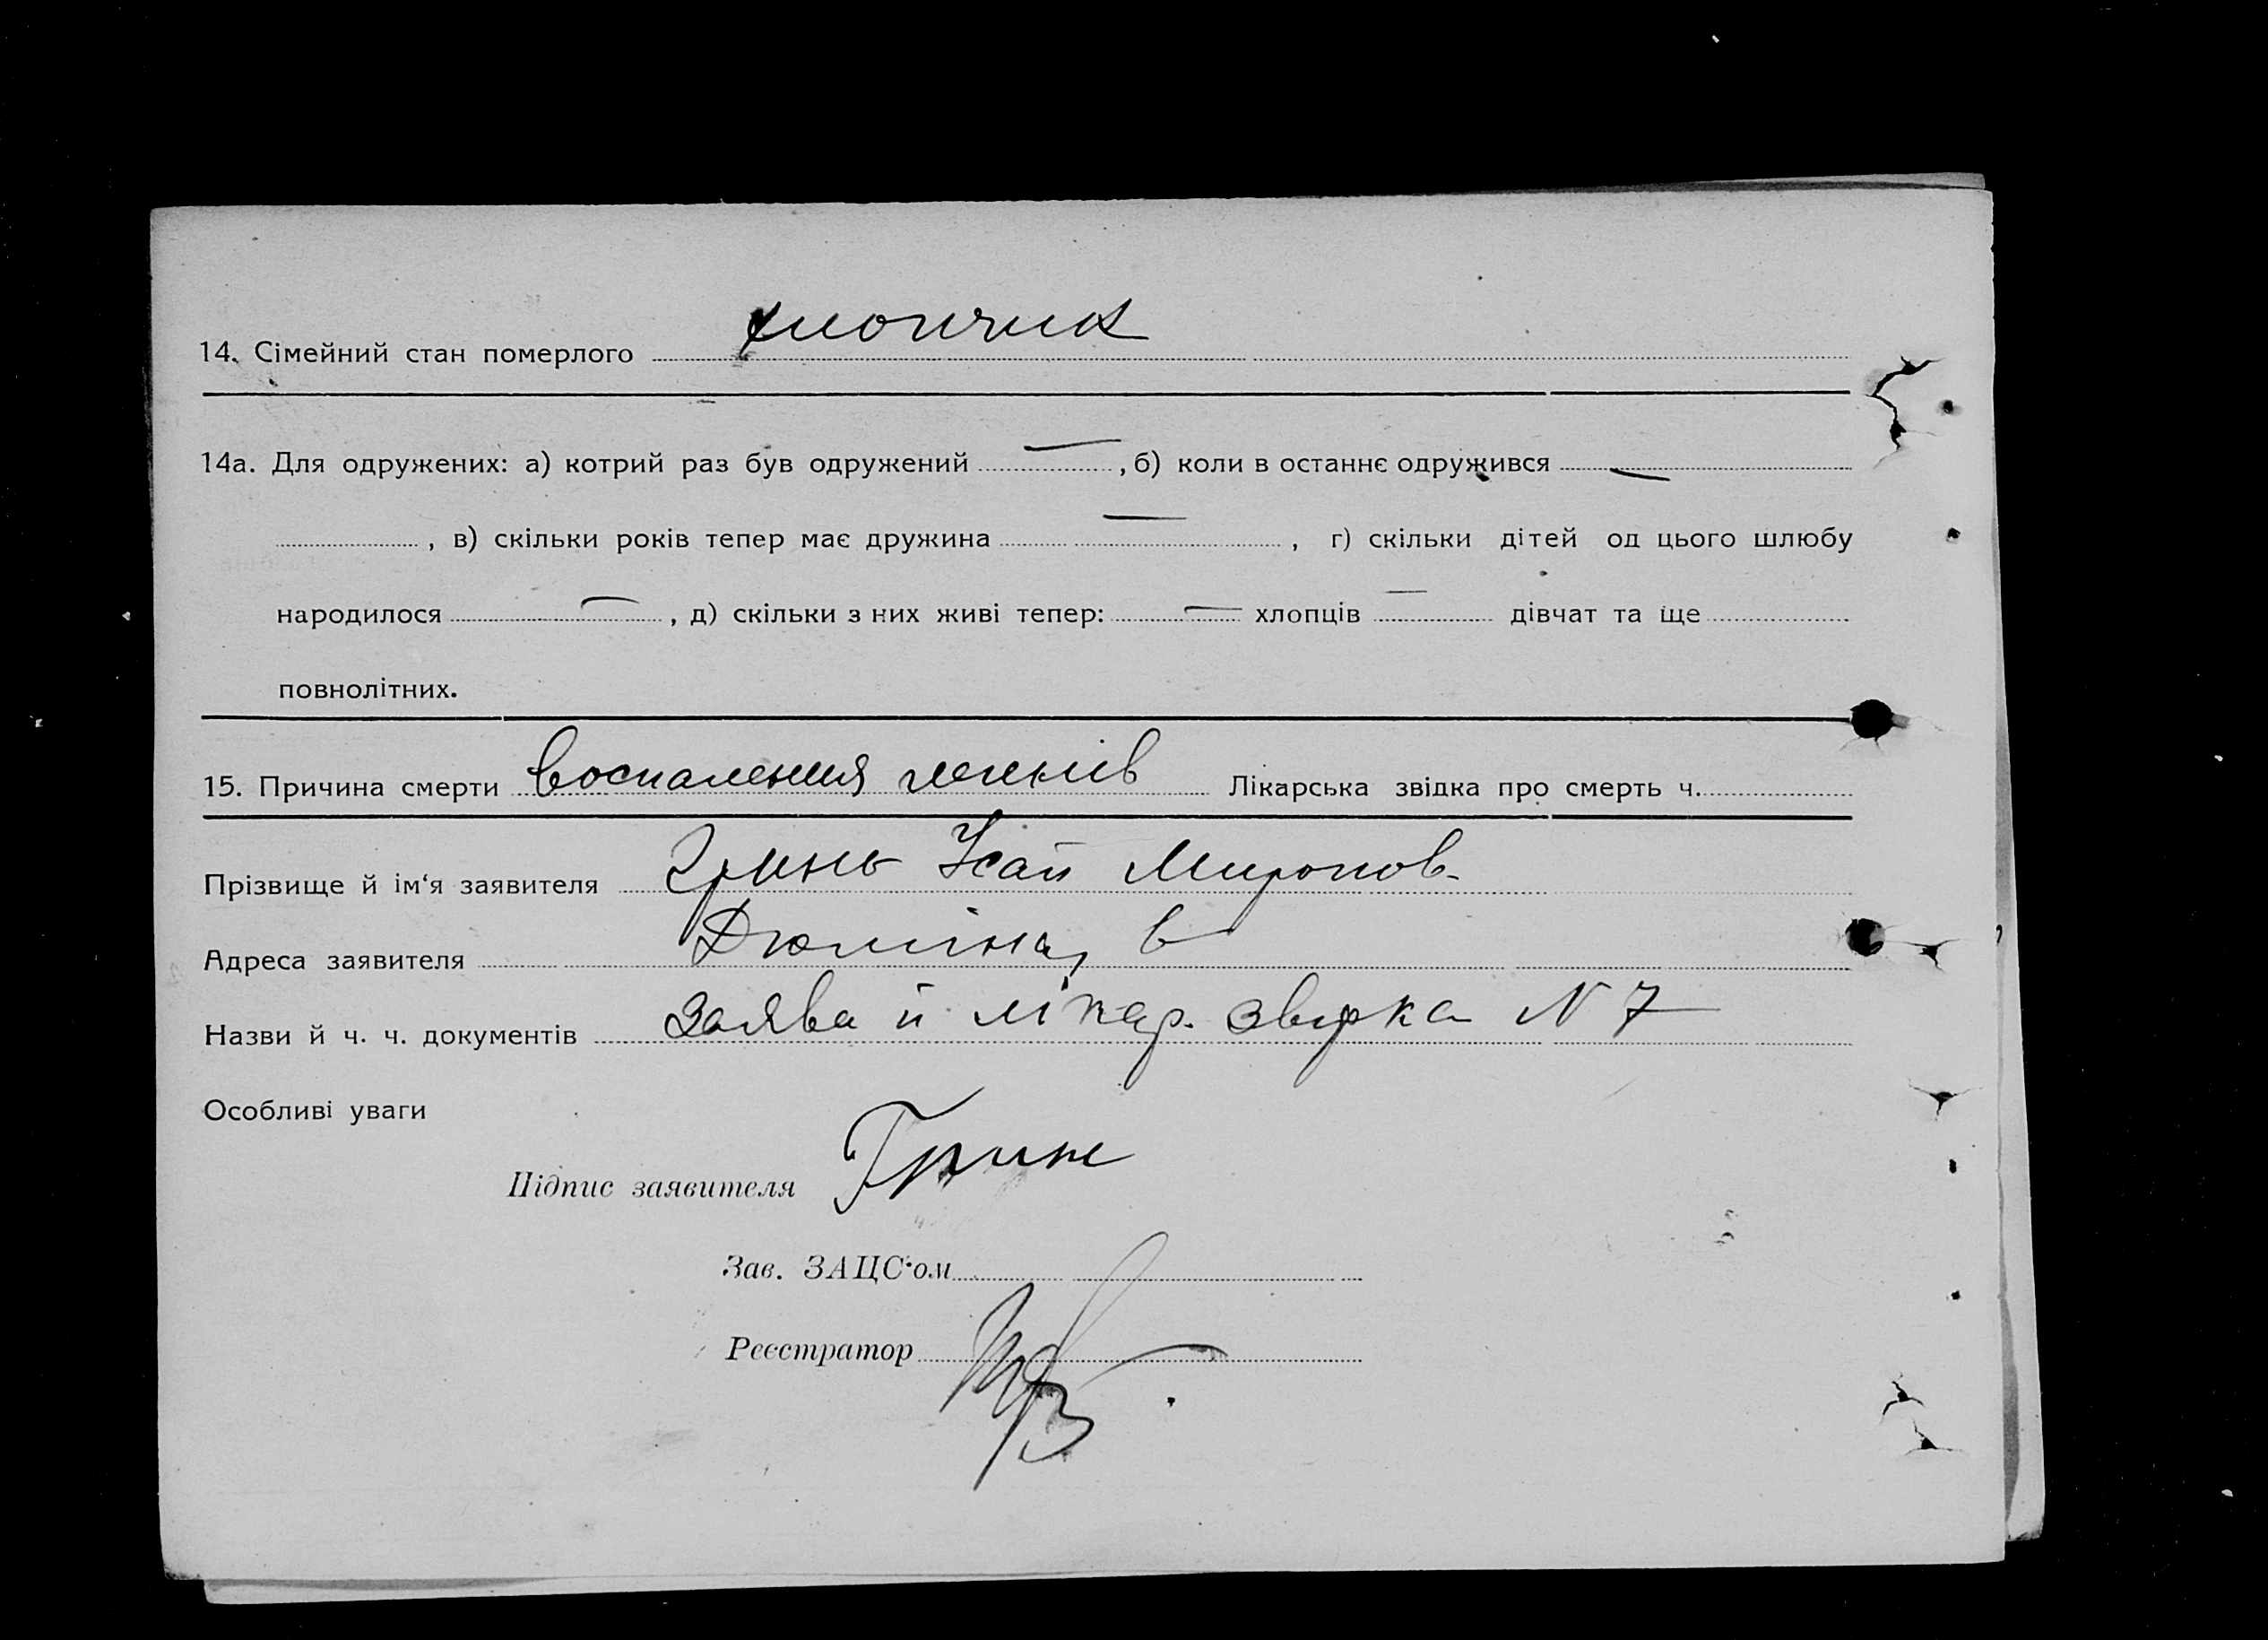 14. Сімейний стан померлого хлопчик
14а. Для одружених: а) котрий раз був одружений —, б) коли в останнє одружився —
, в) скільки років тепер має дружина —, г) скільки дітей од цього шлюбу
народилося —, д) скільки з них живі тепер: — хлопців — дівчат та ще
повнолітних.
15. Причина смерти воспаления легенів Лікарська звідка про смерть ч.
Прізвище й ім'я заявителя Гринь Ісай Миронов-
Адреса заявителя 6
Назви й ч. ч. документів заява й лікар. звідка N 7
Особливі уваги
Підпис заявителя Грине
Зав. ЗАЦС'ом
Реєстратор